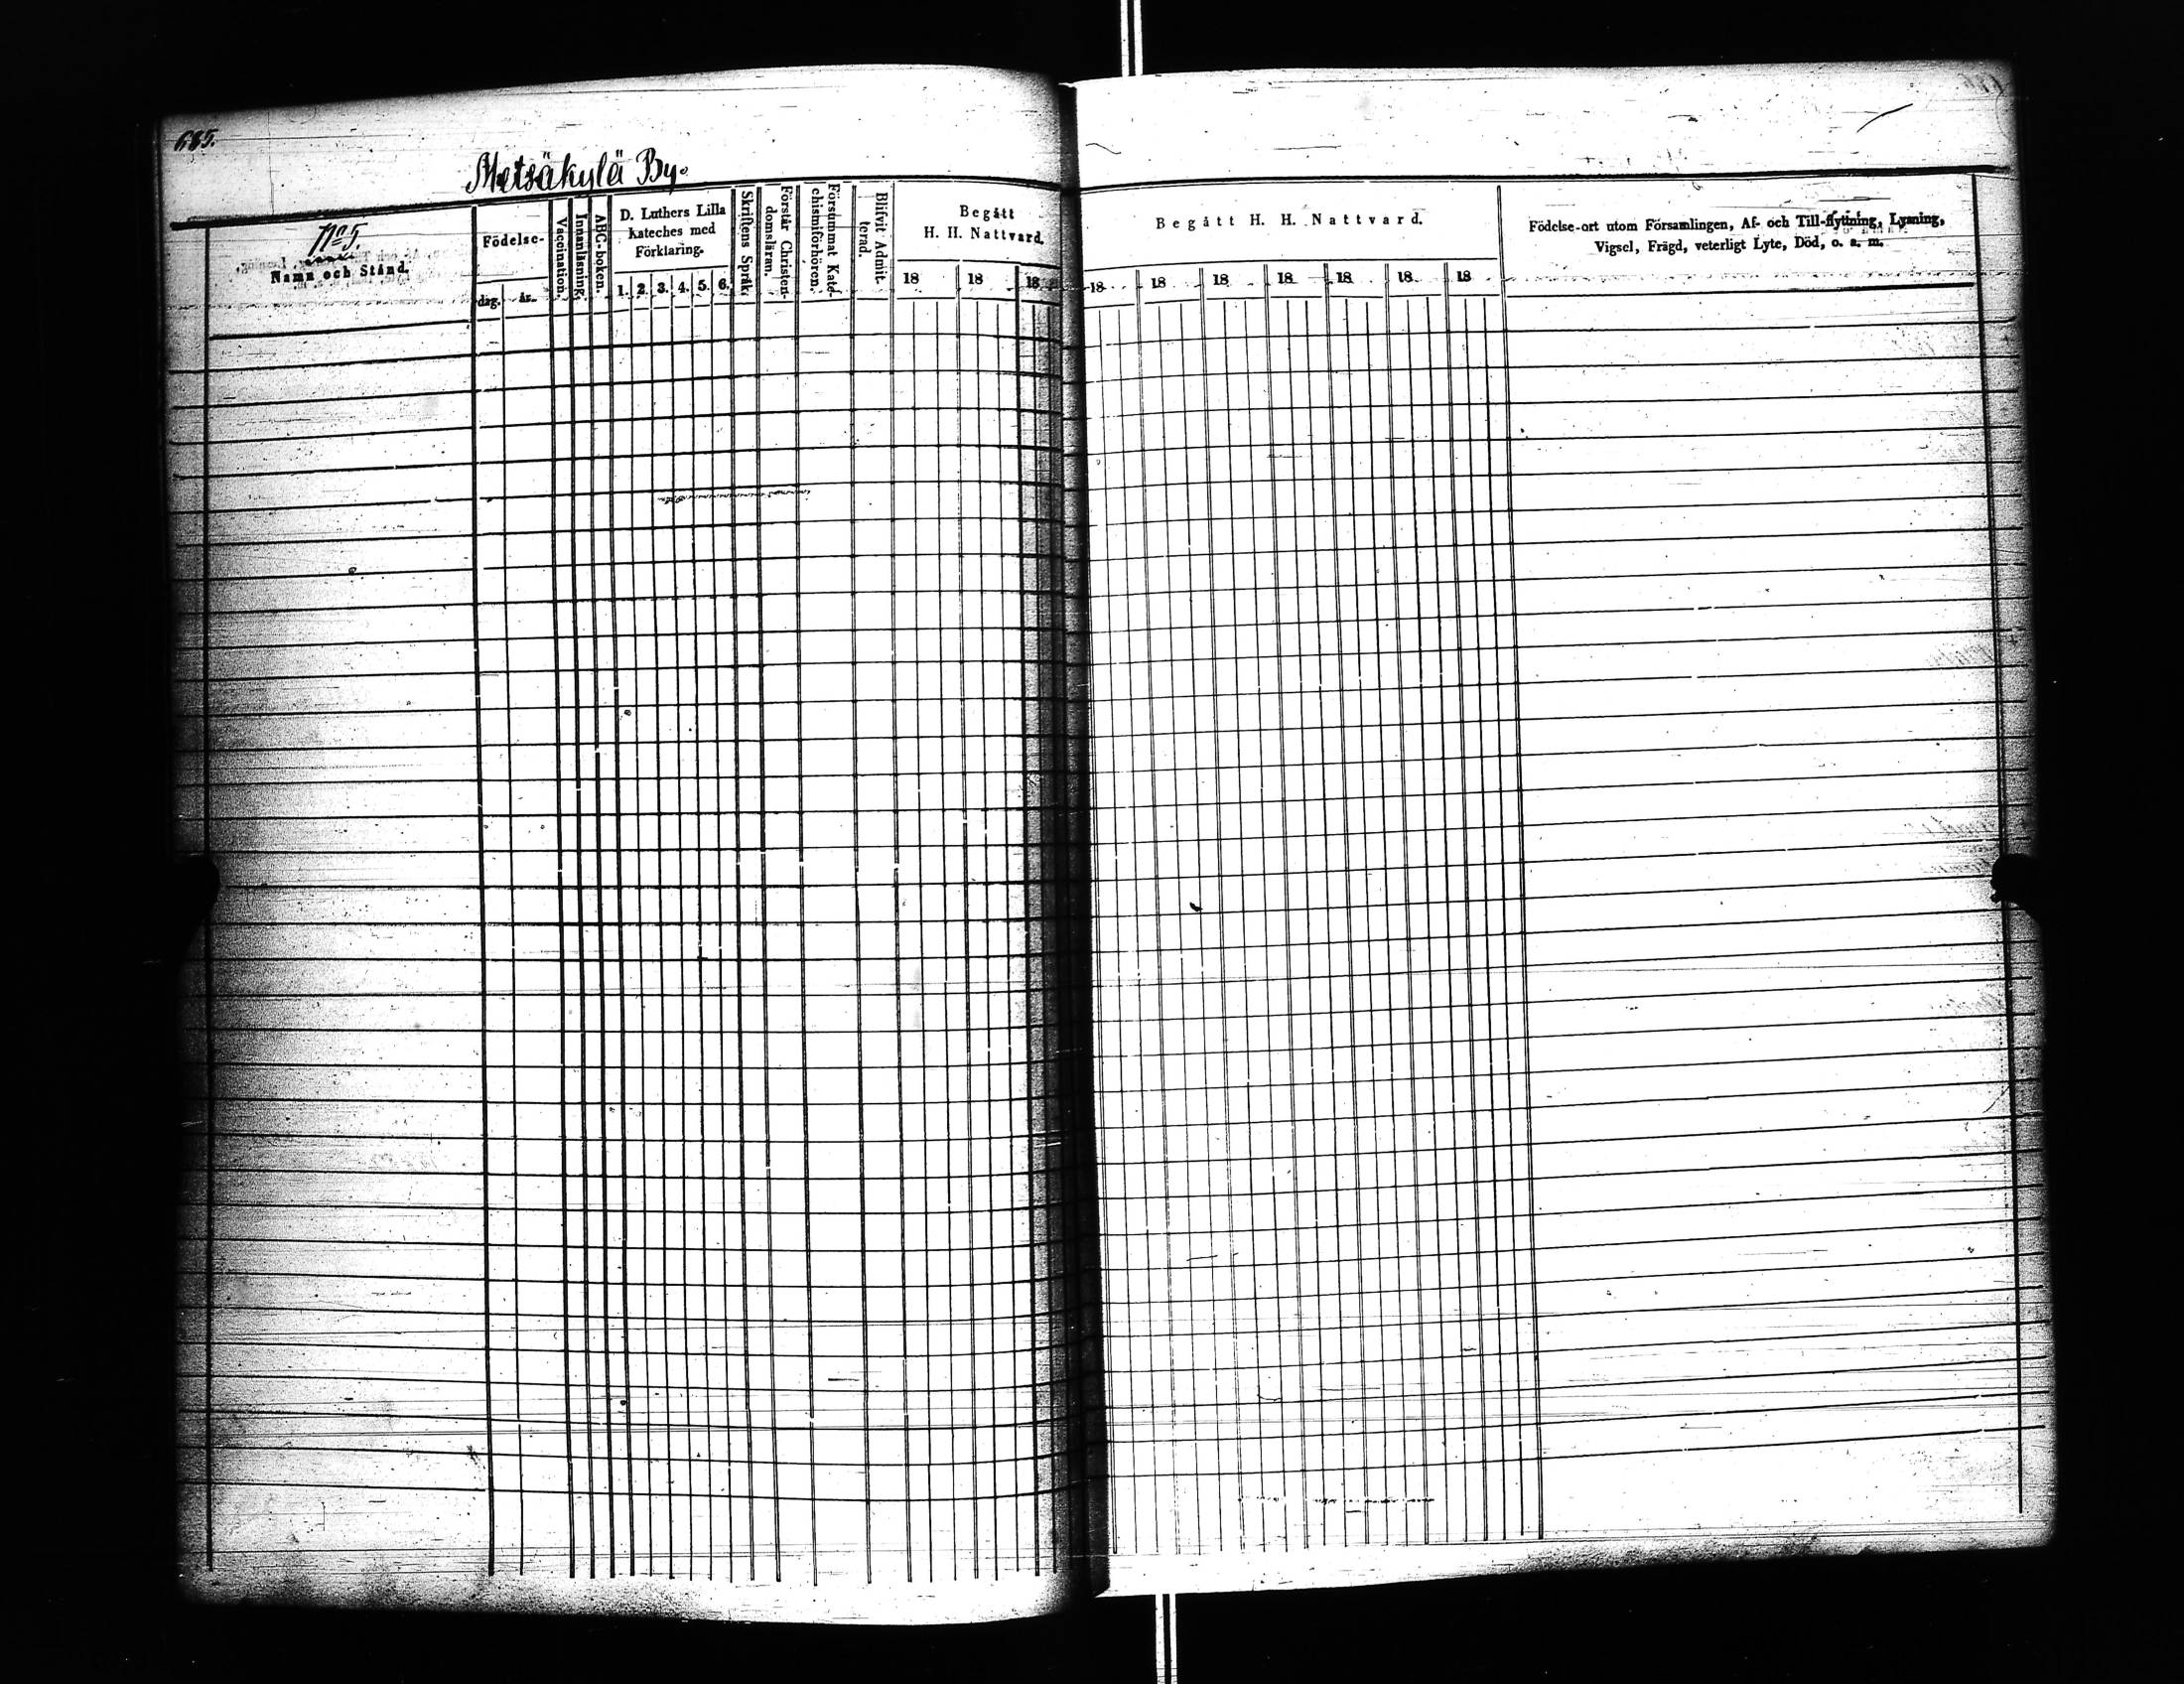 685.
Metsäkylä By.
No 5.
Namn och Stånd.
Födelse-
dag. år.
Vaccination.
Innanläsning.
ABC-boken.
D. Luthers Lilla
Kateches med
Förklaring.
1. 2. 3. 4. 5. 6.
Skriftens Språk.
Förstår Christen-
domsläran.
Försummat Kate-
chismiförhören.
Blifvit Admit-
terad.
Begått
H. H. Nattvard.
18 18 18
Begått H. H. Nattvard.
18 18 18 18 18 18 18
Födelse-ort utom Församlingen, Af- och Till-flyttning, Lysning,
Vigsel, Frägd, veterligt Lyte, Död, o. a. m.